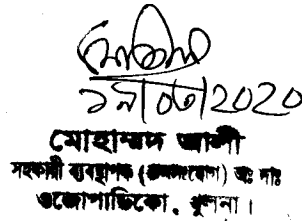 ১৯/০৩/2020
মোহাম্মদ আলী
সহকারী ব্যবস্থাপক (জনসংযোগ) অঃ দাঃ
ওজোপাডিকো, খুলনা।